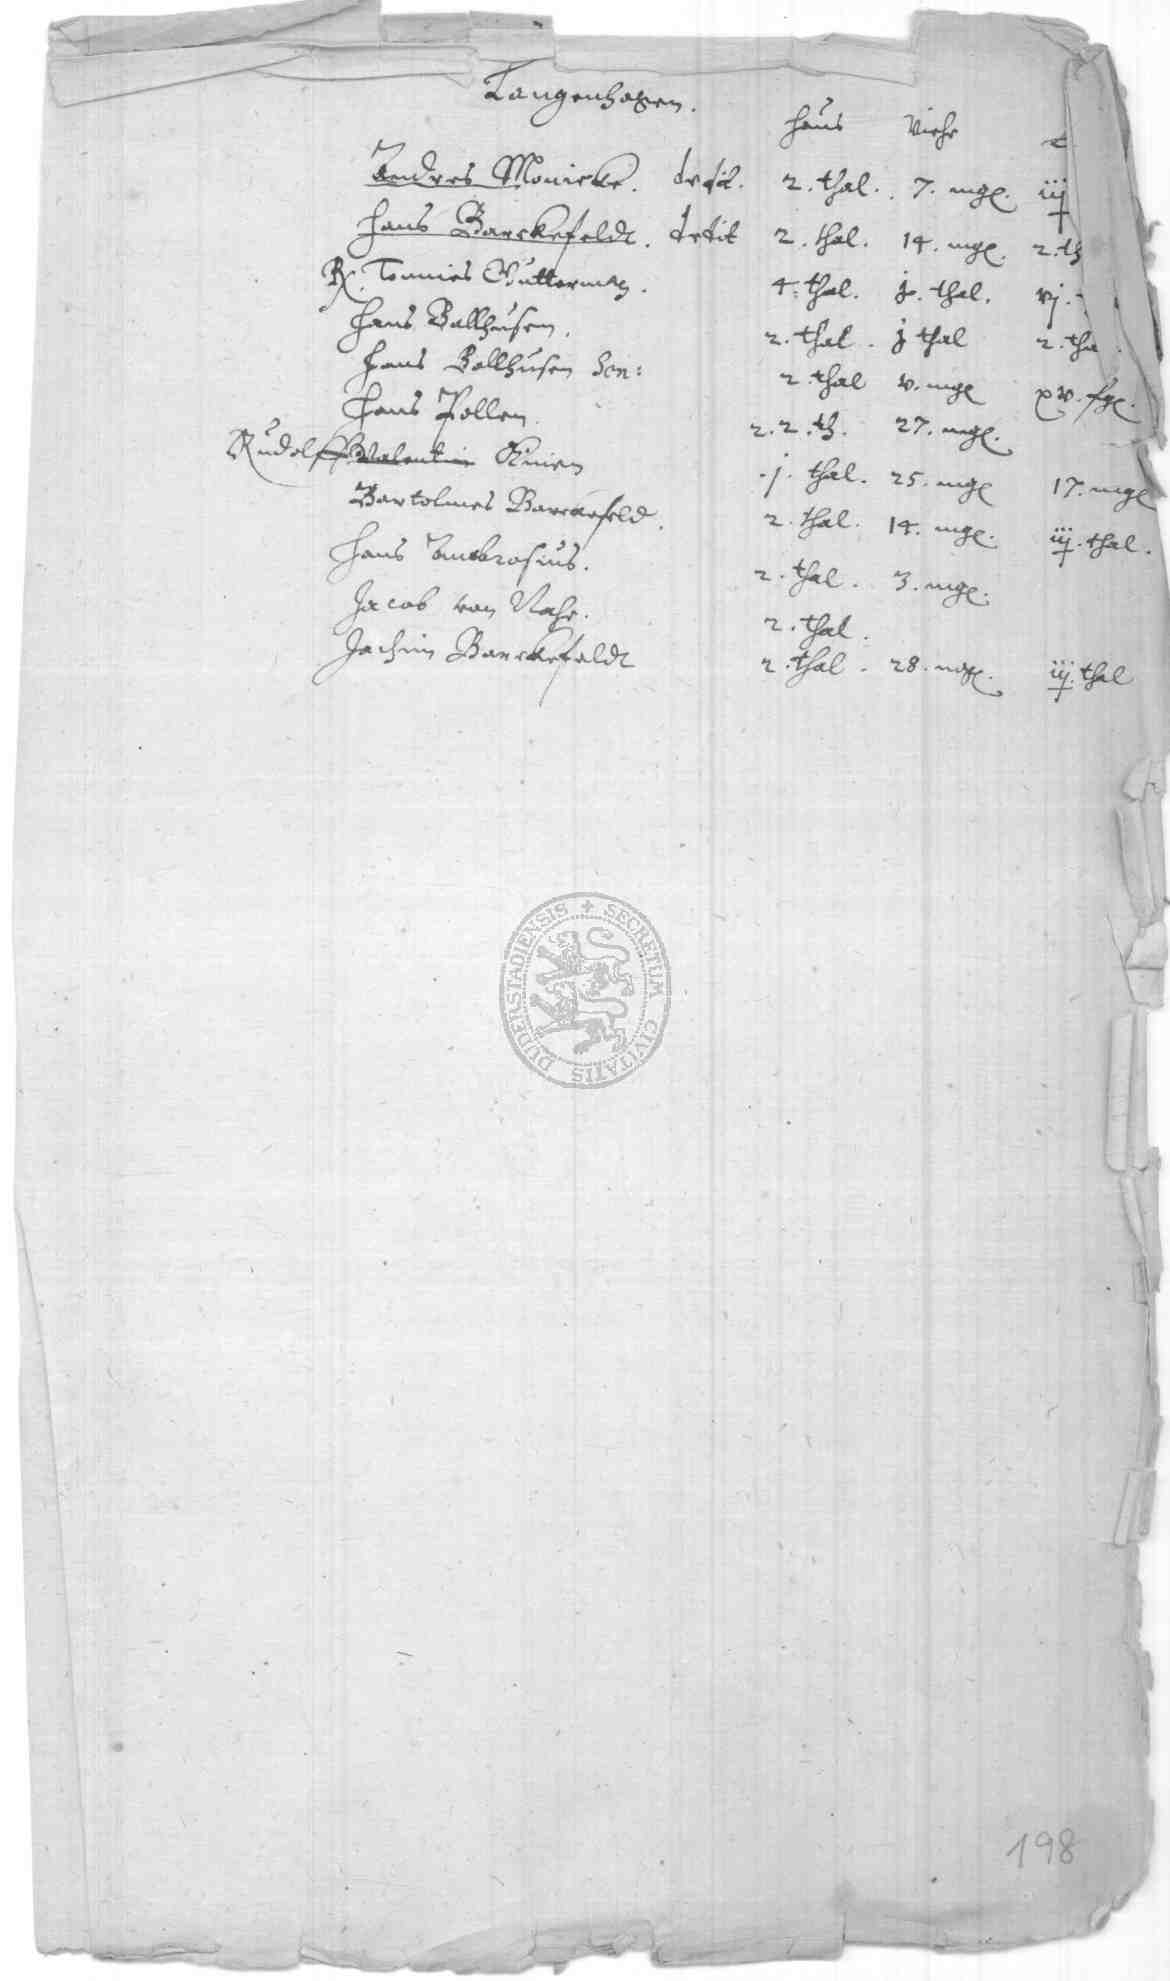 Langenhagen.
haus Viehe
Andres Monicke. dedit. 2. thal. 7. mgl. iij
Hans Barckefeldt. dedit 2. thal. 14. mgl. 2. th
Rx. Tonnies Gutterman. 4. thal. j. thal. vj.
Hans Ballhusen. 2. thal. j thal 2. tha
Hans Ballhusen Sen: 2 thal v. mgl xv. fgl.
Hans Pollen. 2. 2. th. 27. mgl.
Rudolff Valentin .j. thal. 25. mgl 17. mgl
Bartolmes Barckefeld. 2. thal. 14. mgl. iij. thal.
Hans Ambrosius. 2. thal. 3. mgl.
Jacob von Rahe. 2. thal.
Jochim Barckefeldt 2. thal. 28. mgl. iij. thal
SECRETUM CIVITATIS DUDERSTADIENSIS
198